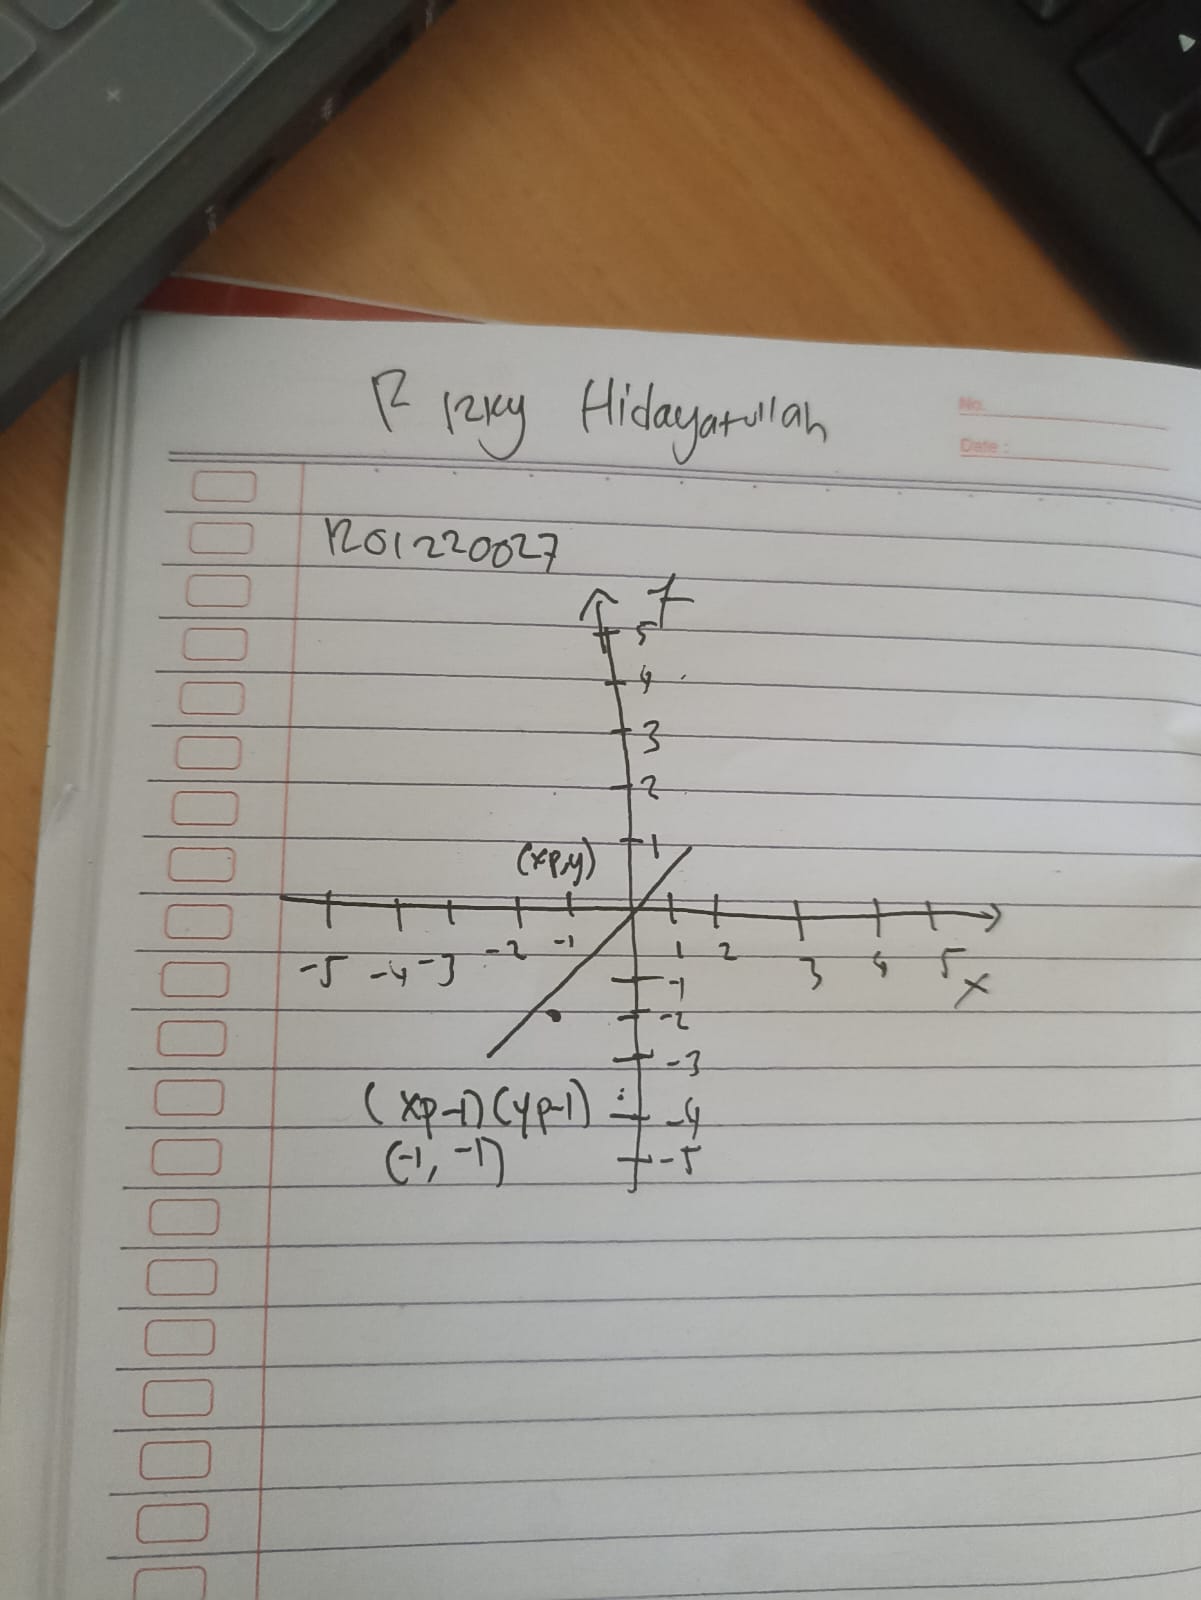 Rizky Hidayatullah
No.
Date :
1201220027
Y
5
4
3
2
1
(xp,y)
-5 -4 -3 -2 -1 1 2 3 4 5
X
-1
-2
-3
(xp-1) (yp-1)
-4
(-1, -1)
-5